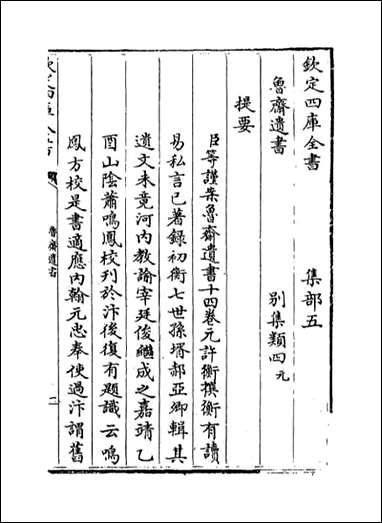 欽定四庫全書
集部五
魯齋遺書
别集類四元
提要
臣等謹案魯齋遺書十四卷元許衡撰衡有讀
易私言已著錄初衡七世孫壻郝亞卿輯其
遺文未竟河内教諭宰廷俊繼成之嘉靖乙
酉山陰蕭鳴鳳校刋於汴後復有題識云鳴
鳳方校是書適應内翰元忠奉使過汴謂舊
魯齋遺書